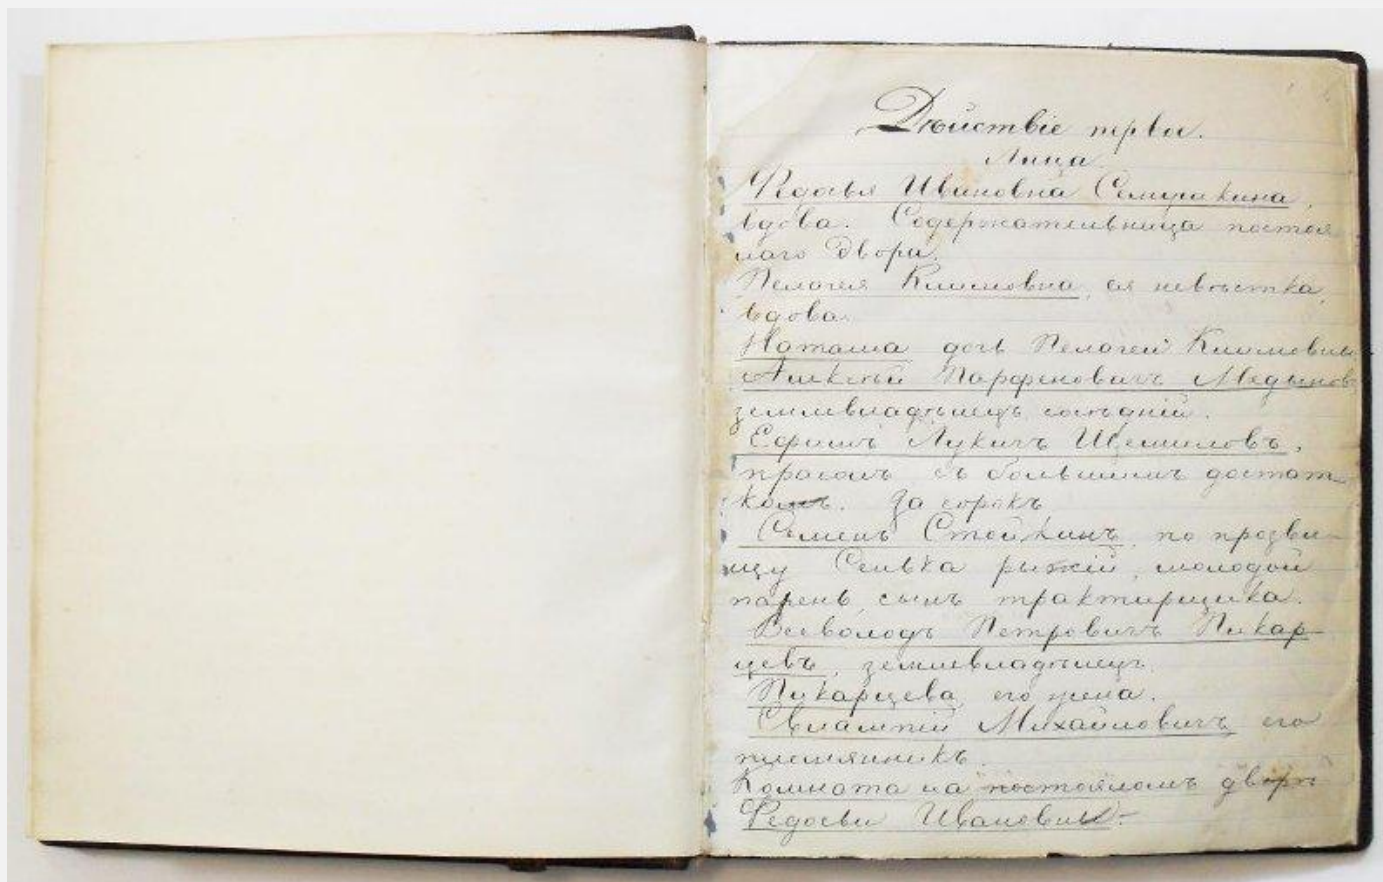 Дѣйствіе перво.
Лица.
Федосья Ивановна Семиракина,
вдова. Содержательница постоя
лаго двора.
Пелагея Климовна, ея невѣстка,
вдова.
Наташа дочь Пелагеи Климовны
Алексѣй Парфеновичъ Медынов
землевладѣлецъ сосѣдній.
Ефимъ Лукичъ Щемиловъ,
прасолъ съ большимъ достат
комъ. За сорокъ
Семенъ Стойкинъ, по прозви-
щу Сенька рыжій, молодой
парень, сынъ трактирщика.
Всеволодъ Петровичъ Пикар
цевъ, землевладѣлецъ.
Пикарцева его жена.
Евлампій Михайловичъ его
племянникъ.
Комната на постояломъ дворѣ
Федосьи Ивановны.